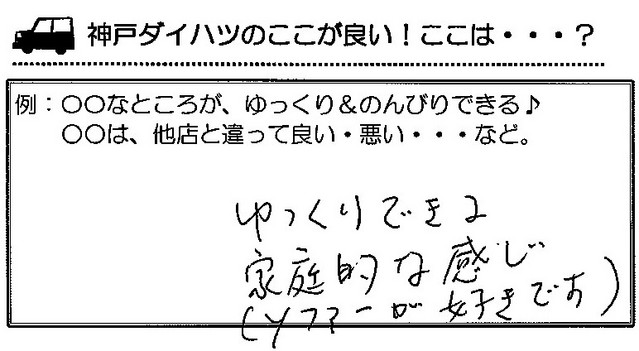 神戸ダイハツのここが良い！ここは・・・？
例：〇〇なところが、ゆっくり＆のんびりできる♪
〇〇は、他店と違って良い・悪い・・・など。
ゆっくりできる
家庭的な感じ
(ソファーが好きです)